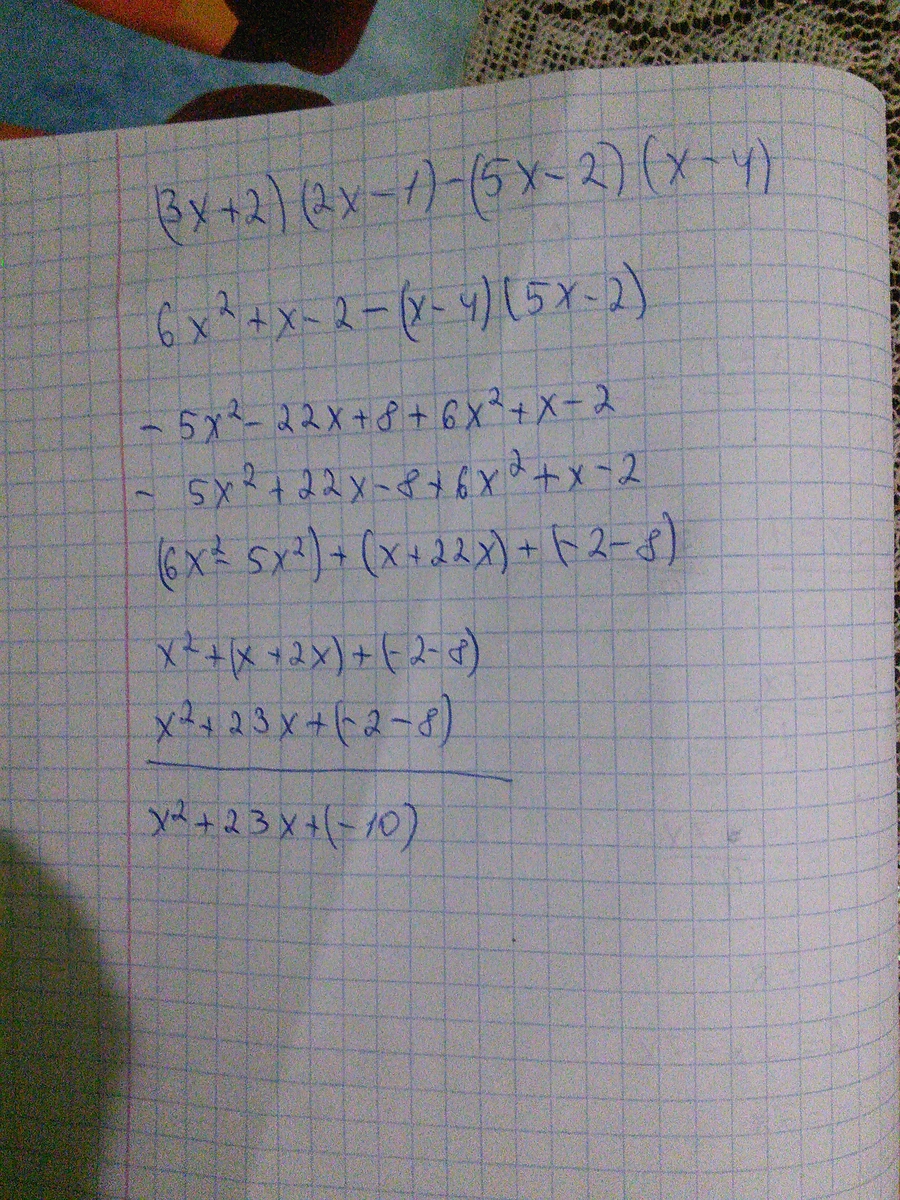 (3x+2)(2x-1)-(5x-2)(x-4)
6x²+x-2-(x-4)(5x-2)
-5x²-22x+8+6x²+x-2
-5x²+22x-8+6x²+x-2
(6x²-5x²)+(x+22x)+(-2-8)
x²+(x+2x)+(-2-8)
x²+23x+(-2-8)
x²+23x+(-10)